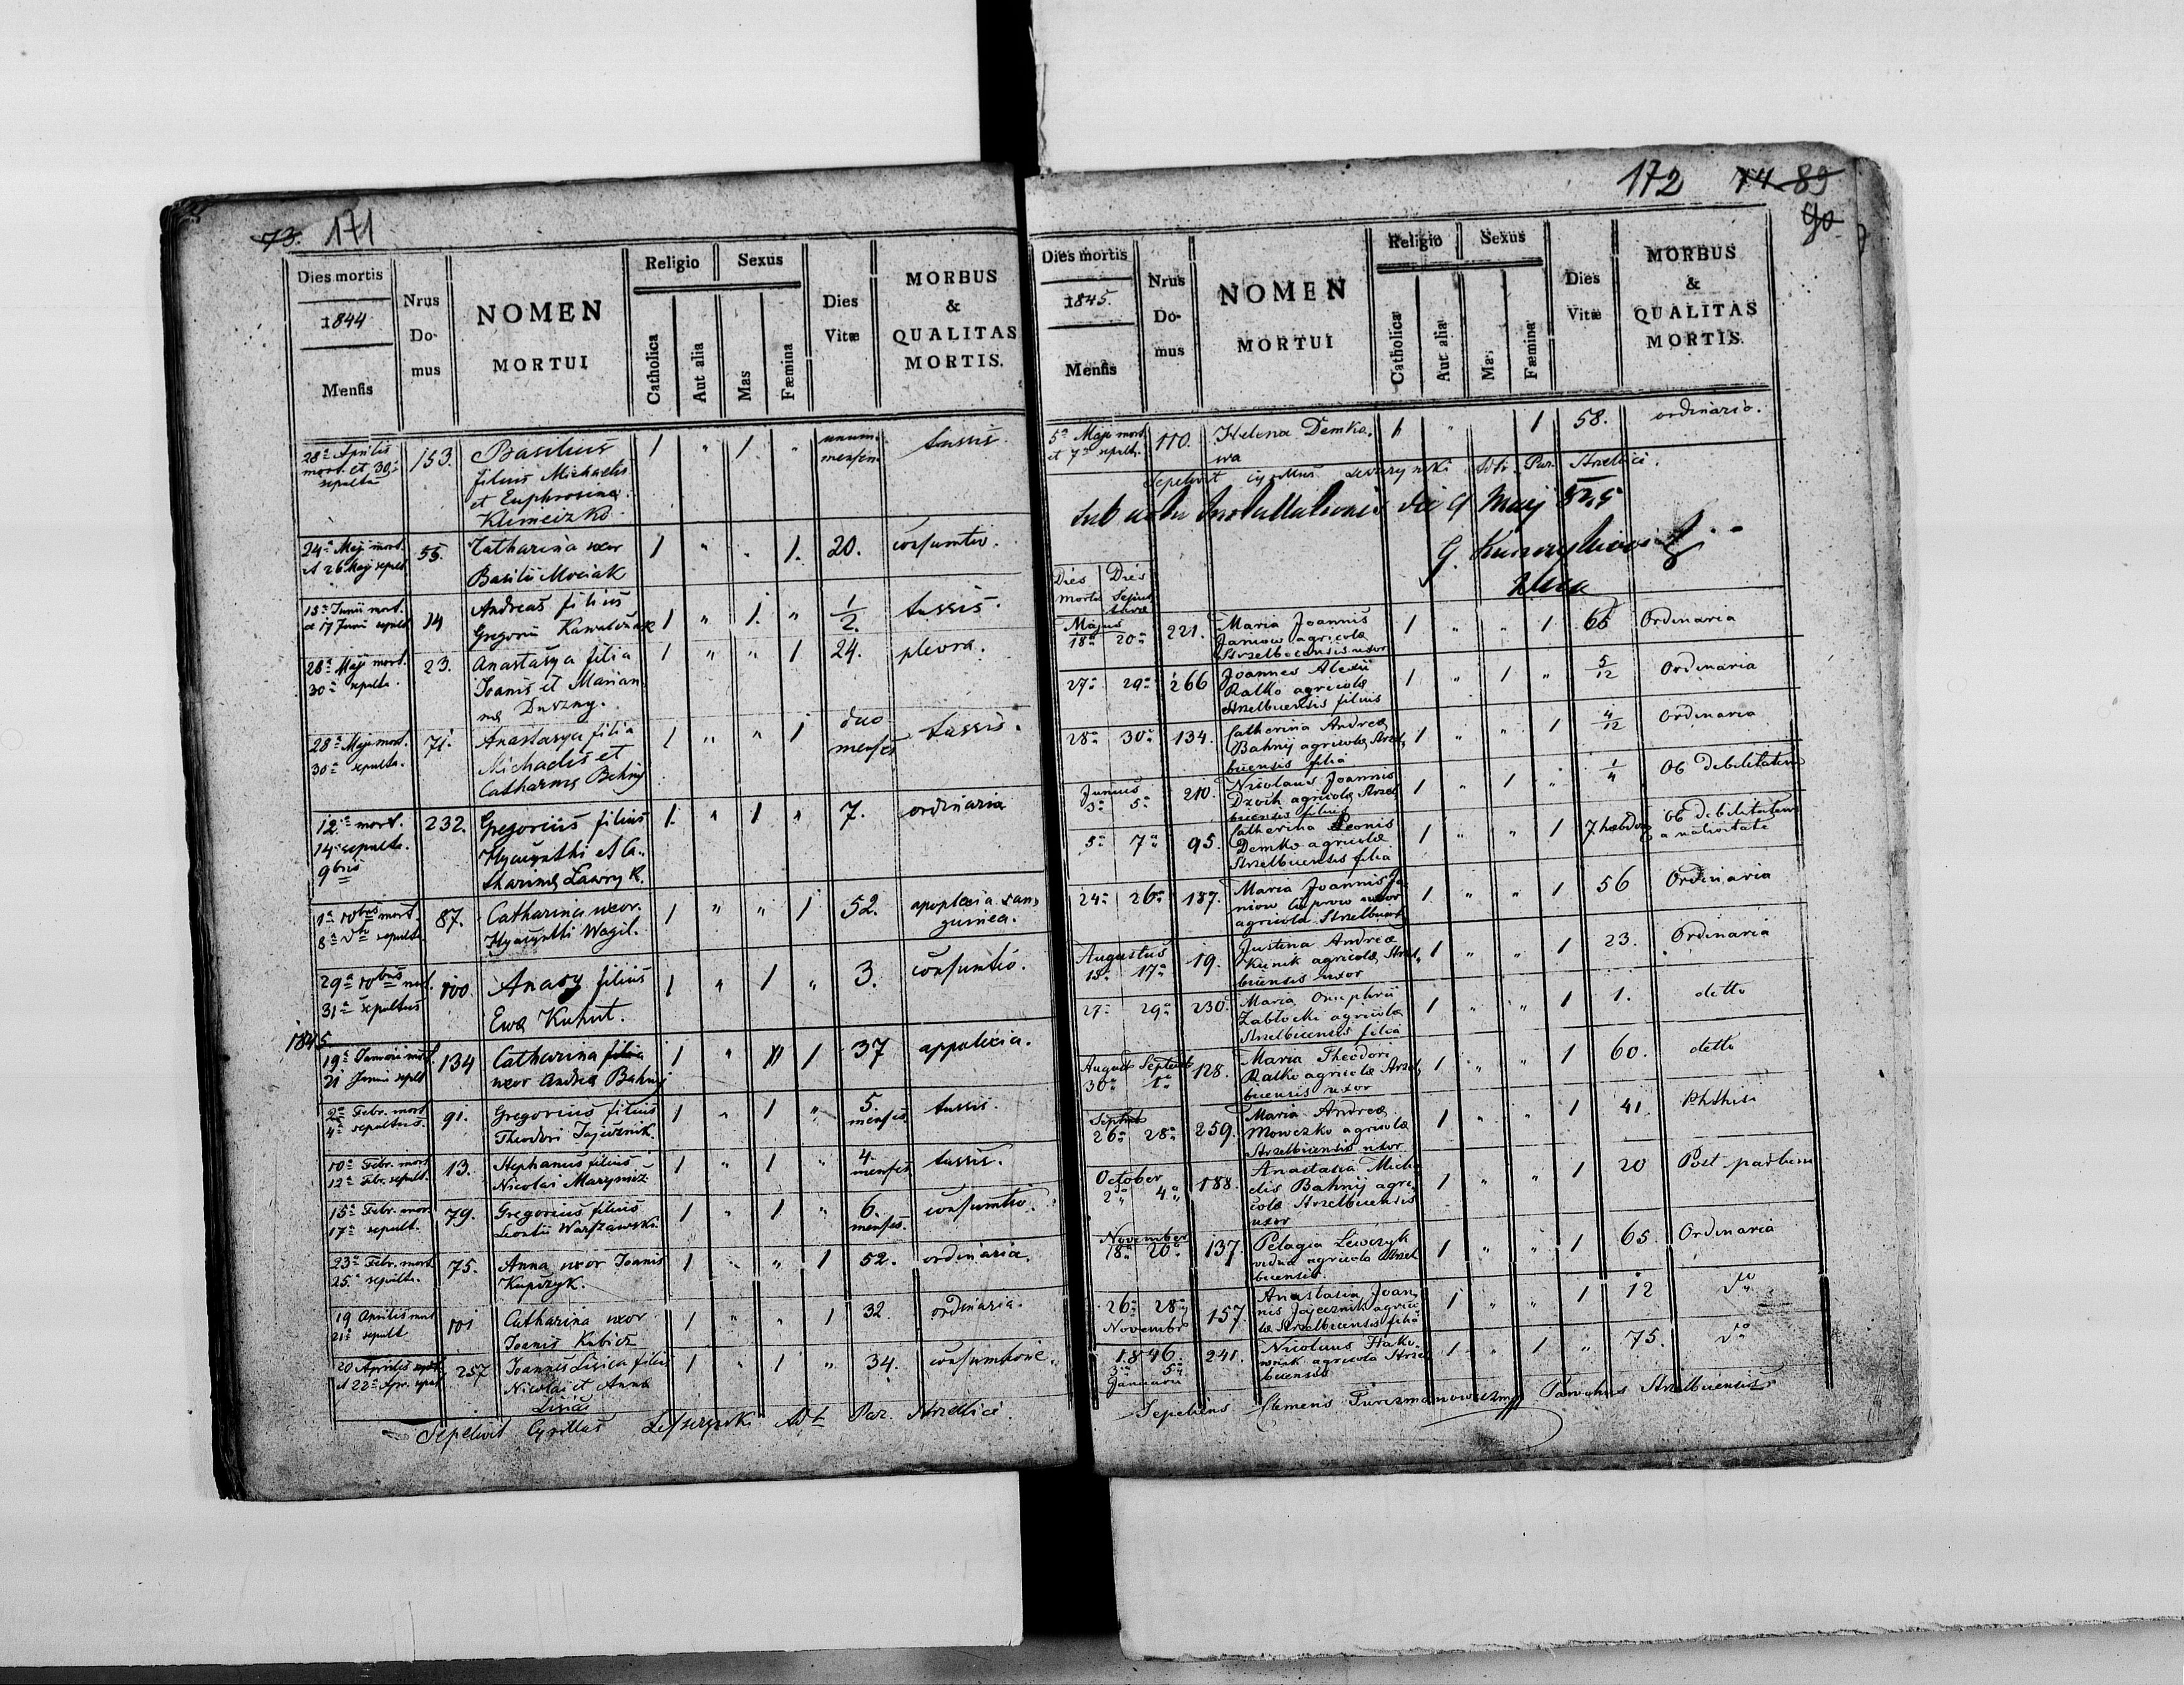 73. 171
Dies mortis
1844
Mensis
Nrus
Do-
mus
NOMEN
MORTUI
Religio
Catholica
Aut alia
Sexus
Mas
Fæmina
Dies
Vitæ
MORBUS
&
QUALITAS
MORTIS.
28ª Aprilis
mort. et 30ª
sepulta
153. Basilius
filius Michaelis
et Euphrosinæ
Klimeczko
1 " 1 " unum
mensem
tussis.
24ª Maji mort.
et 26 Maji sepult
55. Catharina uxor
Basilii Mociak
1 " " 1. 20. consumtio.
15ª Junii mort.
et 17 Junii sepult
14 Andreas filius
Gregorii
1 " 1. " 1/2. tussis.
26ª Maji mort.
30ª sepulta.
23. Anastasya filia
Joanis et Marian
næ Duszny.
1 " " 1 24. pleura.
28ª Maji mort.
30ª sepulta.
71. Anastasya filia
Michaelis et
Catharinæ Bahnij
1 " " 1 duo
menses
tussis.
12ª mort.
14ª sepulta.
9bris
232. Gregorius filius
Hyacynthi et Ca-
tharinæ Lawryk.
1. " 1 " 7. ordinaria
1ª 10bris mort.
8ª sepult.
87. Catharina uxor
Hyacynthi Wagil.
1 " " 1 52. apoplexia san-
guinea.
29ª 10bris mort.
31ª sepultus
100. Anasy filius
Ewæ Kuhut.
1 " 1 " 3. consumtio.
1845
19ª Januarii mort.
21 Januar sepult
134 Catharina filia
uxor Andreæ Bahnij
1 " 1 37 appolexia.
2ª Febr. mort
4ª sepultus.
91. Gregorius filius
Theodori Jajecznik.
1 " 1 " 5.
menses
tussis.
10ª Febr. mort
12ª Febr. sepult.
13. Stephanus filius
Nicolai
1 " 1 " 4.
menses
tussis.
15ª Febr. mor.
17ª sepult.
79. Gregorius filius
Leontii Warszawski.
1 " 1 " 6.
menses.
consumtio.
23ª Febr. mort
25ª sepulta.
75. Anna uxor Joanis
Kupczyk.
1 " " 1 52. ordinaria.
19 Aprilis mort
21ª sepult
101 Catharina uxor
Joanis Kubicz
1 " " 1 32 ordinaria.
20 Aprilis mort
et 22ª Apr. sepult
257 Joannes Lisica filius
Nicolai et Annæ
Lisica
1 " 1 " 34. consumtione.
Sepelivit Cyrillus Leszczynski Adt Par. Strzelbici.
172 74 89
90
Dies mortis
1845.
Mensis
Nrus
Do-
mus
NOMEN
MORTUI
Religio
Catholica
Aut alia
Sexus
Mas
Fæmina
Dies
Vitæ
MORBUS
&
QUALITAS
MORTIS.
5ª Maji mort
et 7ª sepult.
110. Helena Demko-
wa
1 " 1 58. ordinario.
Sepelivit Cyrillus Leszczynski Adt. Par. Strzelbici.
Sub actu Installationis die 9 Maij 845
Dies
mortis
Dies
Sepul
turæ
Majus
18ª 20ª 221. Maria Joannis
Janiow agricolæ
Strzelbicensis uxor
1 " " 1 66 Ordinaria
27ª 29ª 266 Joannes Alexii
Ralko agricolæ
Strzelbicensis filius
1 " 1 " 5/12 Ordinaria
28ª 30ª 134. Catherina Andreæ
Bahnij agricolæ Strzel
bicensis filia
1 " " 1 4/12 Ordinaria
Junius
3ª 5ª 210. Nicolaus Joannis
Dzoch agricolæ Strzel
bicensis filius
1 " 1 " 1/4 Ob debilitatem
5ª 7ª 95. Catherina Leonis
Demko agricolæ
Strzelbicensis filia
1 " " 1 7 hebdom Ob debilitatem
a nativitate
24ª 26ª 187. Maria Joannis Ja
niow uxor
agricolæ Strzelbicen
1 " " 1 56 Ordinaria
Augustus
15ª 17ª 19. Justina Andreæ
Kunik agricolæ Strzel
bicensis uxor
1 " " 1 23. Ordinaria
27ª 29ª 230. Maria Onuphrii
Zabłocki agricolæ
Strzelbicensis filia
1 " " 1 1. detto
August Septemb
30ª 1ª 128. Maria Theodori
Ralko agricolæ Strzel
bicensis uxor
1 " " 1 60. detto
Septemb
26ª 28ª 259. Maria Andreæ
Mowczko agricolæ
Strzelbicensis uxor
1 " " 1 41. Phthisi
October
2ª 4ª 188. Anastasia Micha
elis Bahnij agri
colæ Strzelbicensis
uxor
1 " " 1 20 Post partum
November
18ª 20ª 137. Pelagia Lewczyk
vidua agricolæ Strzel
bicensis.
1 " " 1 65. Ordinaria
26ª 28ª
Novembr
157. Anastasia Joan
nis Jajecznik agrico
læ Strzelbicensis filia
1 " " 1 12 dto
1846
3ª 5ª
Januarii
241. Nicolaus
agricola Strzel
bicensis
1 " 1 " 75. dto
Sepeliens Clemens Parochus Strzelbicensis